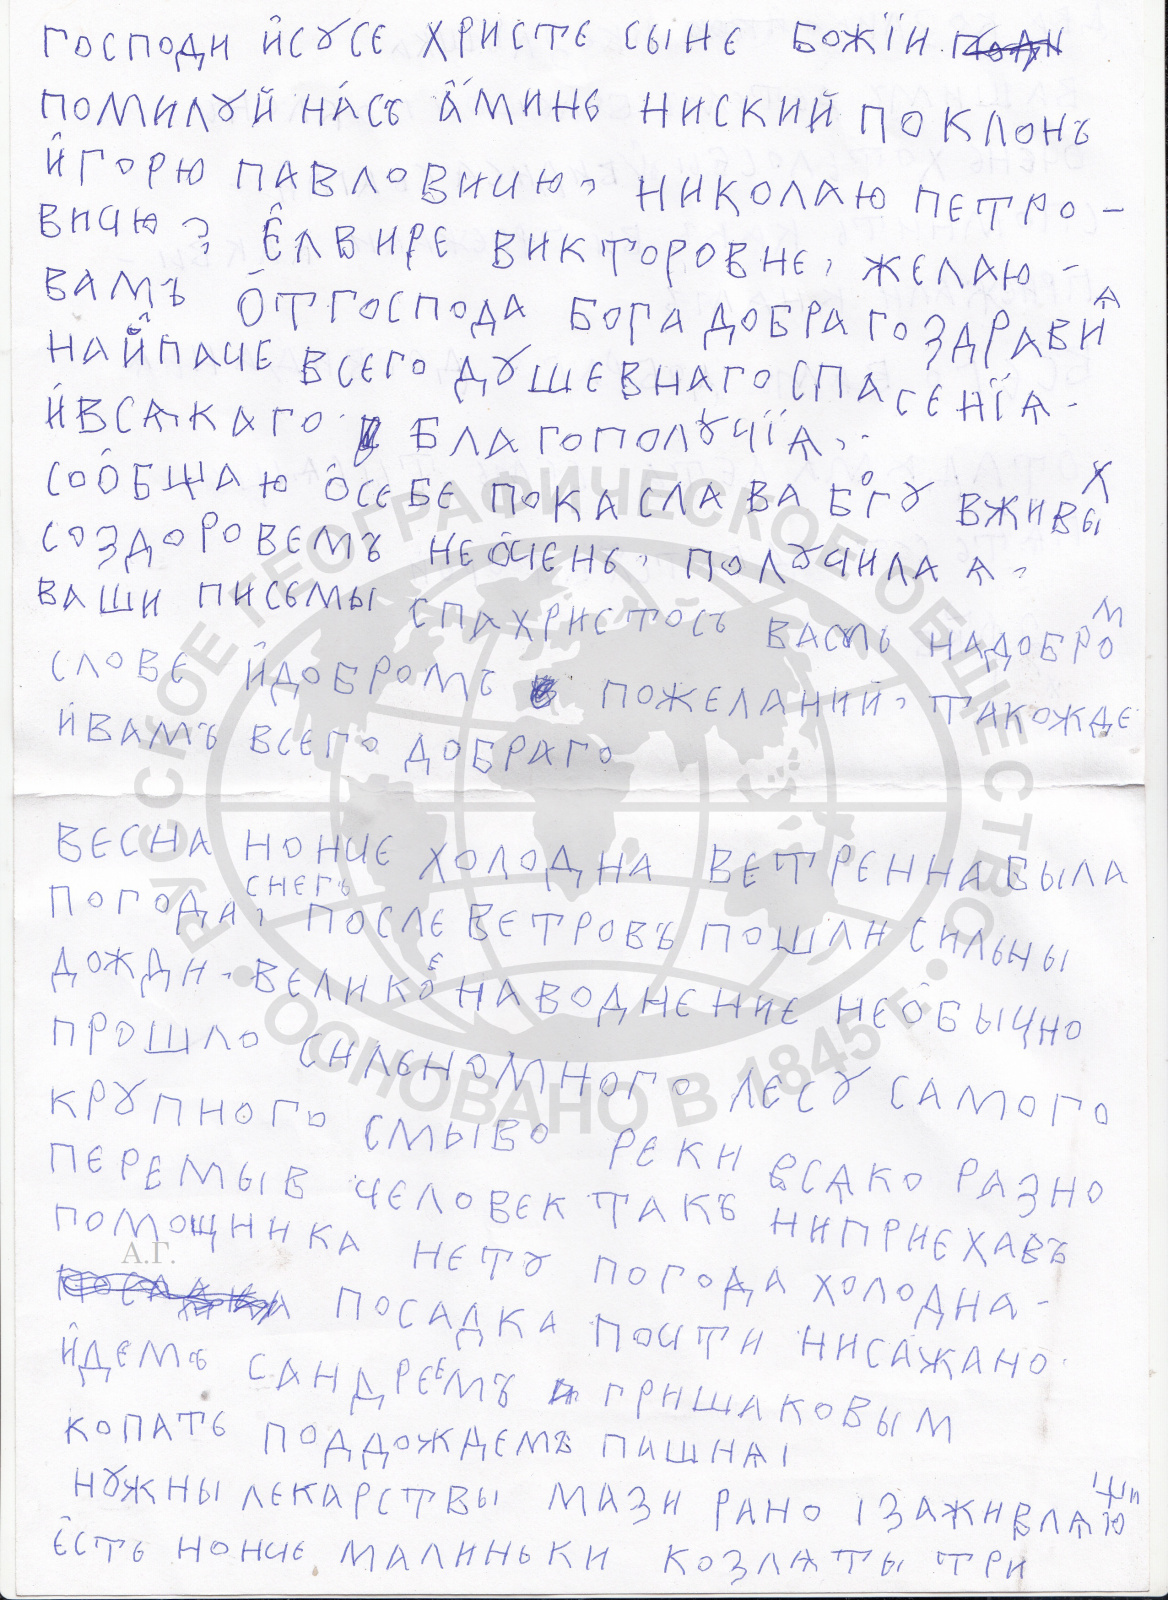 ГОСПОДИ ИСУСЕ ХРИСТЕ СЫНЕ БОЖЇИ
ПОМИЛУЙ НАСЪ АМИНЬ НИСКИЙ ПОКЛОНЪ
ИГОРЮ ПАВЛОВИЧЮ, НИКОЛАЮ ПЕТРО-
ВИЧЮ, ЕЛВИРЕ ВИКТОРОВНЕ, ЖЕЛАЮ-
ВАМЪ ОТГОСПОДА БОГА ДОБРАГО ЗДРАВИѦ
НАИПАЧЕ ВСЕГО ДУШЕВНАГО СПАСЕНЇѦ-
ИВСѦКАГО БЛАГОПОЛУЧЇѦ,
СООБЩАЮ ОСЕБЕ ПОКА СЛАВА БОГУ ВЖИВЫХ
СОЗДОРОВЕМЪ НЕОЧЕНЬ, ПОЛУЧИЛА Ѧ,
ВАШИ ПИСЬМЫ СПАХРИСТОСЪ ВАСМЬ НАДОБРОМ
СЛОВЕ ИДОБРОМЪ ПОЖЕЛАНИЙ, ТАКОЖДЕ
ИВАМЪ ВСЕГО ДОБРАГО
ВЕСНА НОНЧЕ ХОЛОДНА ВЕТРЕННА БЫЛА
ПОГОДА, СНЕГЪ ПОСЛЕ ВЕТРОВЪ ПОШЛИ СИЛЬНЫ
ДОЖДИ, ВЕЛИКОЕ НАВОДНЕНИЕ НЕОБЫЧНО
ПРОШЛО СИЛЬНОМНОГО ЛЕСУ САМОГО
КРУПНОГО СМЫВО РЕКИ ВСѦКО РАЗНО
ПЕРЕМЫВ ЧЕЛОВЕК ТАКЪ НИПРИЕХАВЪ
ПОМОЩНИКА НЕТУ ПОГОДА ХОЛОДНА-
ПОСАДКА ПОЧТИ НИСАЖАНО.
ИДЕМЪ САНДРЕЕМЪ ГРИШАКОВЫМ
КОПАТЬ ПОДДОЖДЕМЪ ПИШНѦІ
НУЖНЫ ЛЕКАРСТВЫ МАЗИ РАНО ІЗАЖИВЛѦЮЩИ
ЕСТЬ НОНЧЕ МАЛИНЬКИ КОЗЛѦТЫ ТРИ
РУССКОЕ ГЕОГРАФИЧЕСКОЕ ОБЩЕСТВО
ОСНОВАНО В 1845 Г.
А.Г.